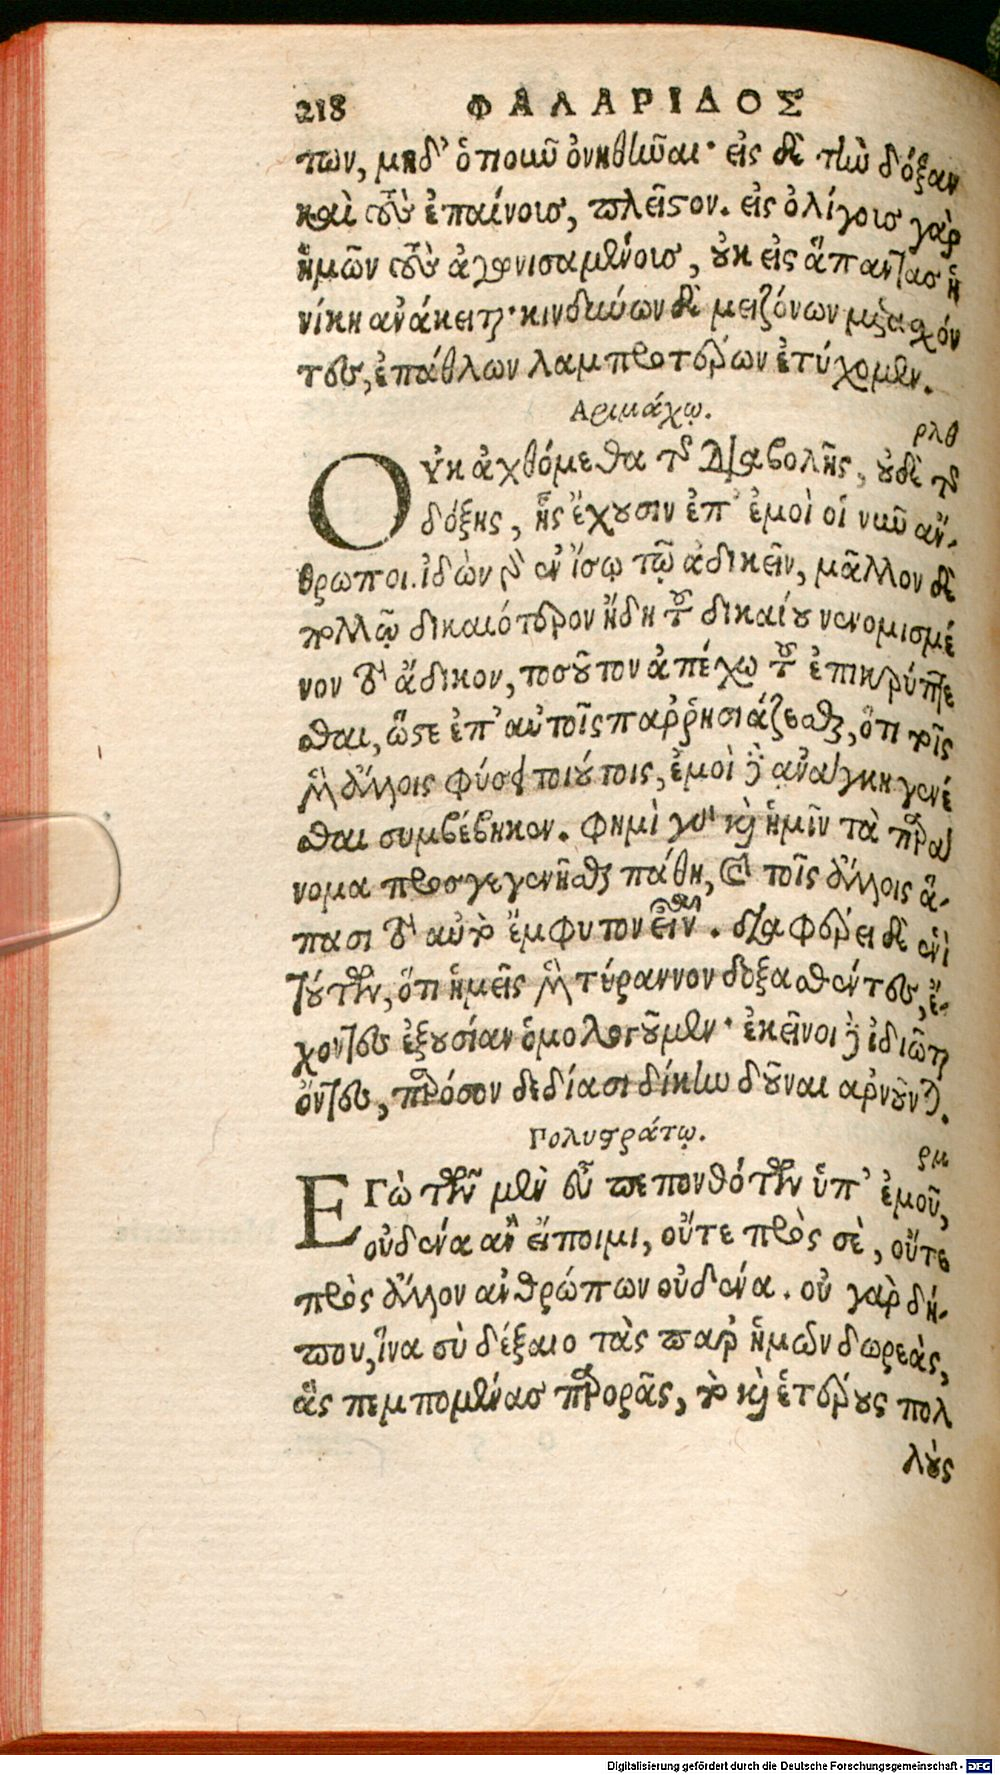 218 ΦΑΛΑΡΙΔΟΣ
των, μηδ' ὁποιοῦ ὀνηθῆναι· εἰς δὲ τὴν δόξαν
καὶ τοὺς ἐπαίνοις, πλεῖστον. εἰς ὀλίγοις γὰρ
ἡμῶν τοὺς ἀγωνισαμένοις, οὐκ εἰς ἅπαντας ἡ
νίκη ἀνάκειται· κινδύνων δὲ μειζόνων μετασχόν
τες, ἐπάθλων λαμπροτέρων ἐτύχομεν.
Αριμάχῳ.
ρλθ
Οὐκ ἀχθόμεθα τῆς διαβολῆς, οὐδὲ τῆς
δόξης, ἧς ἔχουσιν ἐπ' ἐμοὶ οἱ νῦν ἄν-
θρωποι. ἰδὼν γὰρ ἐν ἴσῳ τῷ ἀδικεῖν, μᾶλλον δὲ
πολλῷ δικαιότερον ἤδη τοῦ δικαίου νενομισμέ
νον τὸ ἄδικον, τοσοῦτον ἀπέχω τοῦ ἐπικρύπτε
σθαι, ὥστε ἐπ' αὐτοῖς παῤῥησιάζεσθαι, ὅτι τοῖς
μὲν ἄλλοις φύσει τοιούτοις, ἐμοὶ δὲ ἀνάγκη γενέ
σθαι συμβέβηκεν. φημὶ γὰρ καὶ ἡμῖν τὰ παρά
νομα προσγεγενῆσθαι πάθη, καὶ τοῖς ἄλλοις ἅ-
πασι τὸ αὐτὸ ἔμφυτον εἶναι. διαφέρει δὲ ἑνὶ
τούτων, ὅτι ἡμεῖς μὲν τύραννον δοξασθέντες, ἔ-
χοντες ἐξουσίαν ὁμολογοῦμεν· ἐκεῖνοι δὲ ἰδιῶται
ὄντες, παρόσον δεδίασι δίκην δοῦναι ἀρνοῦνται.
Πολυστράτῳ.
ρμ
Εγὼ τῶν μὲν εὖ πεπονθότων ὑπ' ἐμοῦ,
οὐδένα ἂν εἴποιμι, οὔτε πρὸς σὲ, οὔτε
πρὸς ἄλλον ἀνθρώπων οὐδένα. οὐ γὰρ δή-
που, ἵνα σὺ δέξαιο τὰς παρ' ἡμῶν δωρεὰς,
ἃς πεμπομένας παρορᾷς, τὸ καὶ ἑτέρους πολ
λοὺς
Digitalisierung gefördert durch die Deutsche Forschungsgemeinschaft - DFG